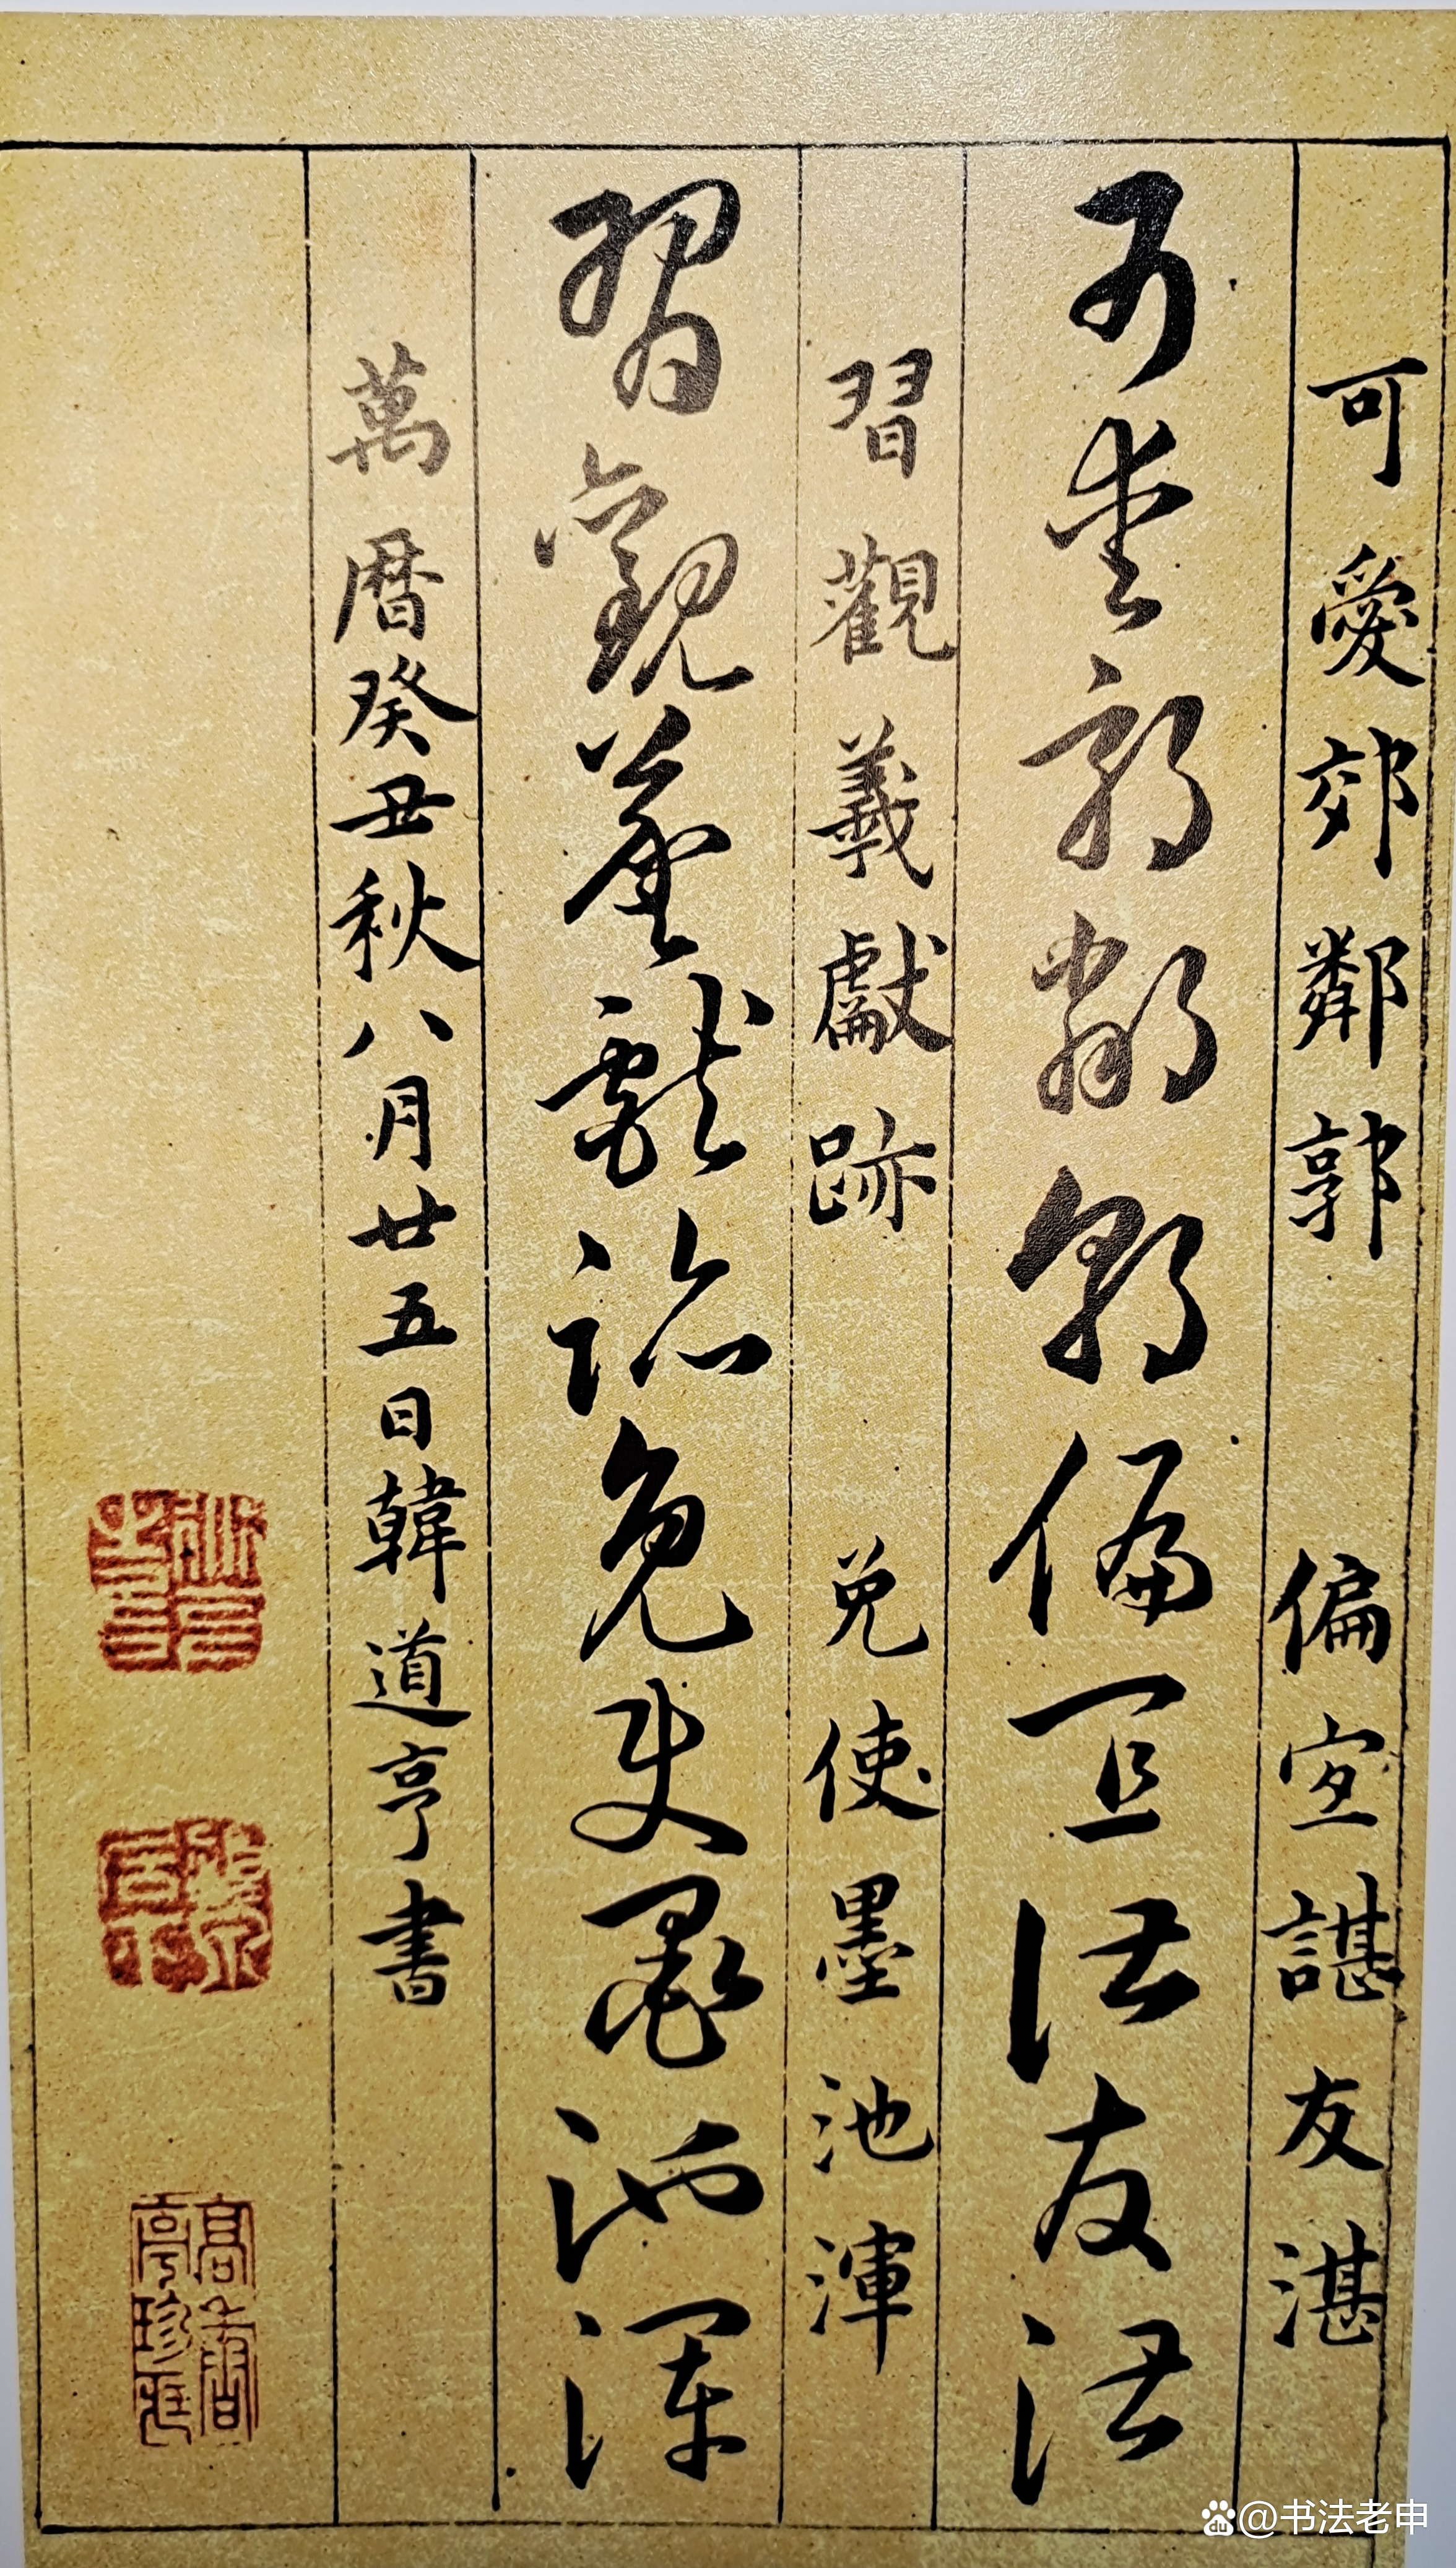 可愛郊鄰郭 偏宜諶友湛
可愛郊鄰郭偏宜諶友湛
習觀羲獻跡 免使墨池渾
習觀羲獻跡免使墨池渾
萬曆癸丑秋八月廿五日韓道亨書
高士奇
@书法老申